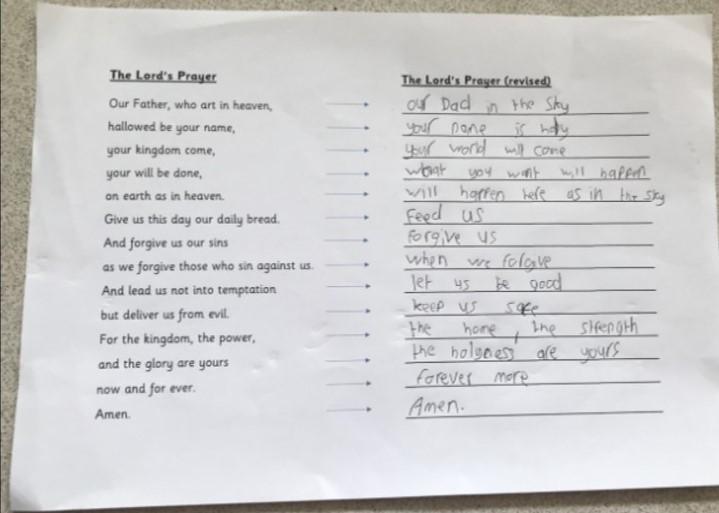 The Lord's Prayer
Our Father, who art in heaven,
hallowed be your name,
your kingdom come,
your will be done,
on earth as in heaven.
Give us this day our daily bread.
And forgive us our sins
as we forgive those who sin against us.
And lead us not into temptation
but deliver us from evil.
For the kingdom, the power,
and the glory are yours
now and for ever.
Amen.
The Lord's Prayer (revised)
our Dad in the Sky
your name is holy
your world will come
what you want will happen
will happen here as in the sky
Feed us
Forgive us
when we forgive
let us be good
keep us safe
the home, the strength
the holyness are yours
forever more
Amen.